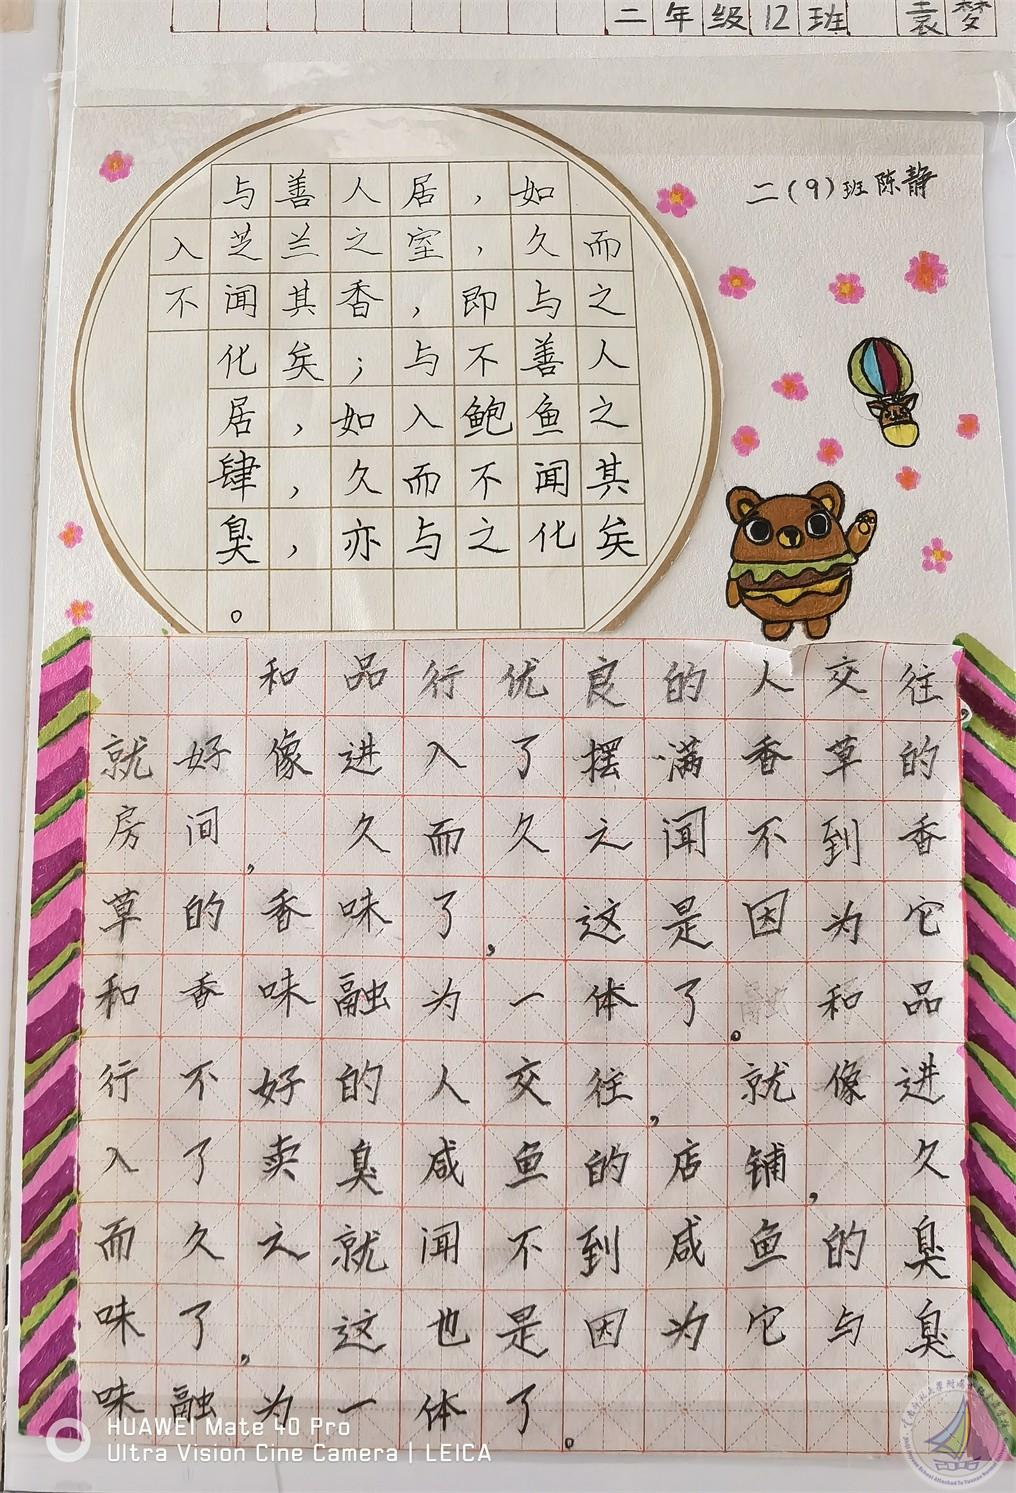 二年级12班 袁梦
二(9)班陈静
与善人居，如
入芝兰之室，久而
不闻其香，即与之
化矣；与不善人
居，如入鲍鱼之
肆，久而不闻其
臭，亦与之化矣
。
和品行优良的人交往，
就好像进入了摆满香草的
房间，久而久之闻不到香
草的香味了，这是因为它
和香味融为一体了。和品
行不好的人交往，就像进
入了卖臭咸鱼的店铺，久
而久之就闻不到咸鱼的臭
味了，这也是因为它与臭
味融为一体了。
HUAWEI Mate 40 Pro
Ultra Vision Cine Camera | LEICA